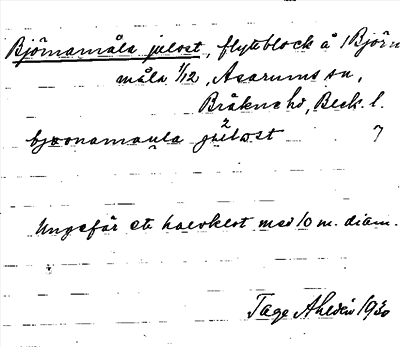 Björnamåla julost, flyttblock å 1 Björna
måla 1/12, Asarums sn,
Bräkne hd, Blek. l.
bjœonamaula jıulost 7
2
Ungefär ett halvklot med 10 m. diam.
Tage Ahldén 1930